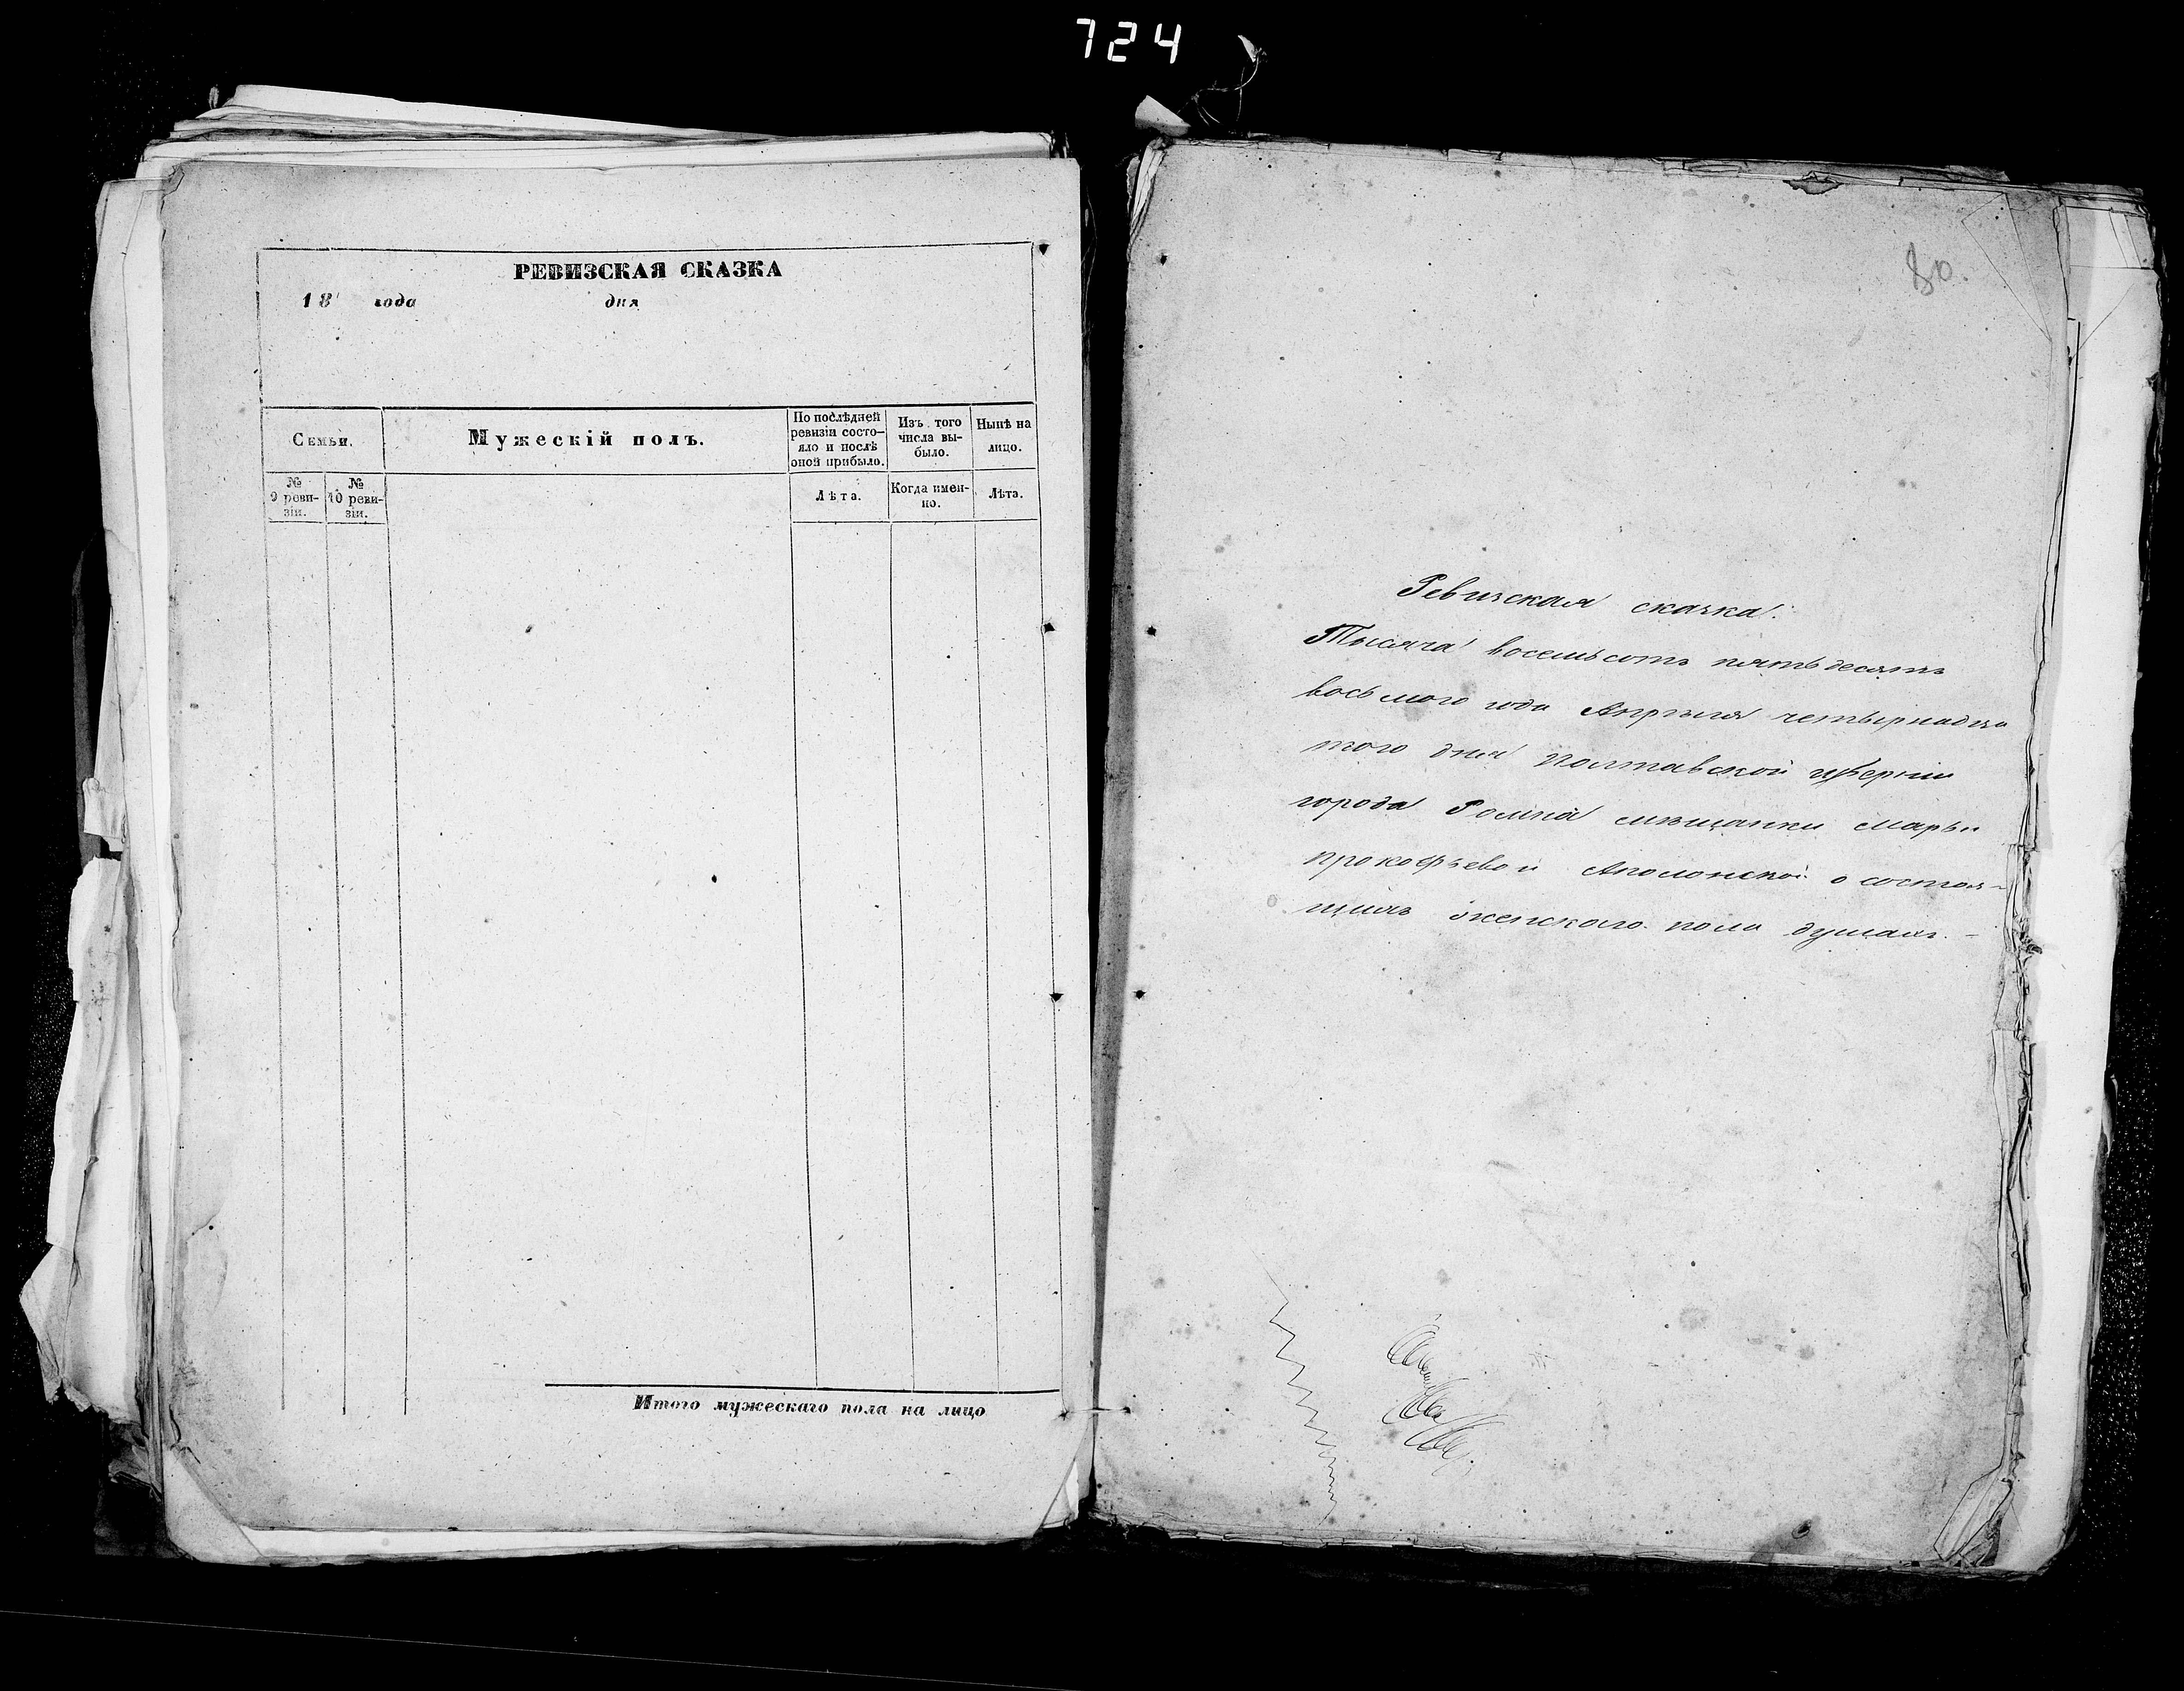 724
РЕВИЗСКАЯ СКАЗКА
18 года дня
Семьи.
Мужескій полъ.
По послѣдней ревизіи состо-
яло и послѣ оной прибыло.
Изъ того числа вы-
было.
Нынѣ на лицо.
№ 9 реви-
зіи.
№ 10 реви-
зіи.
Лѣта.
Когда имен-
но.
Лѣта.
Итого мужескаго пола на лицо
80.
Ревизская сказка.
Тысяча восемьсотъ пятьдесятъ
восьмого года Апрѣля четырнадца
того дня Полтавской губерніи
города Ромна мѣщанки Марьи
Прокофьевой Аполонской о состоя-
щихъ женскаго пола душахъ. -